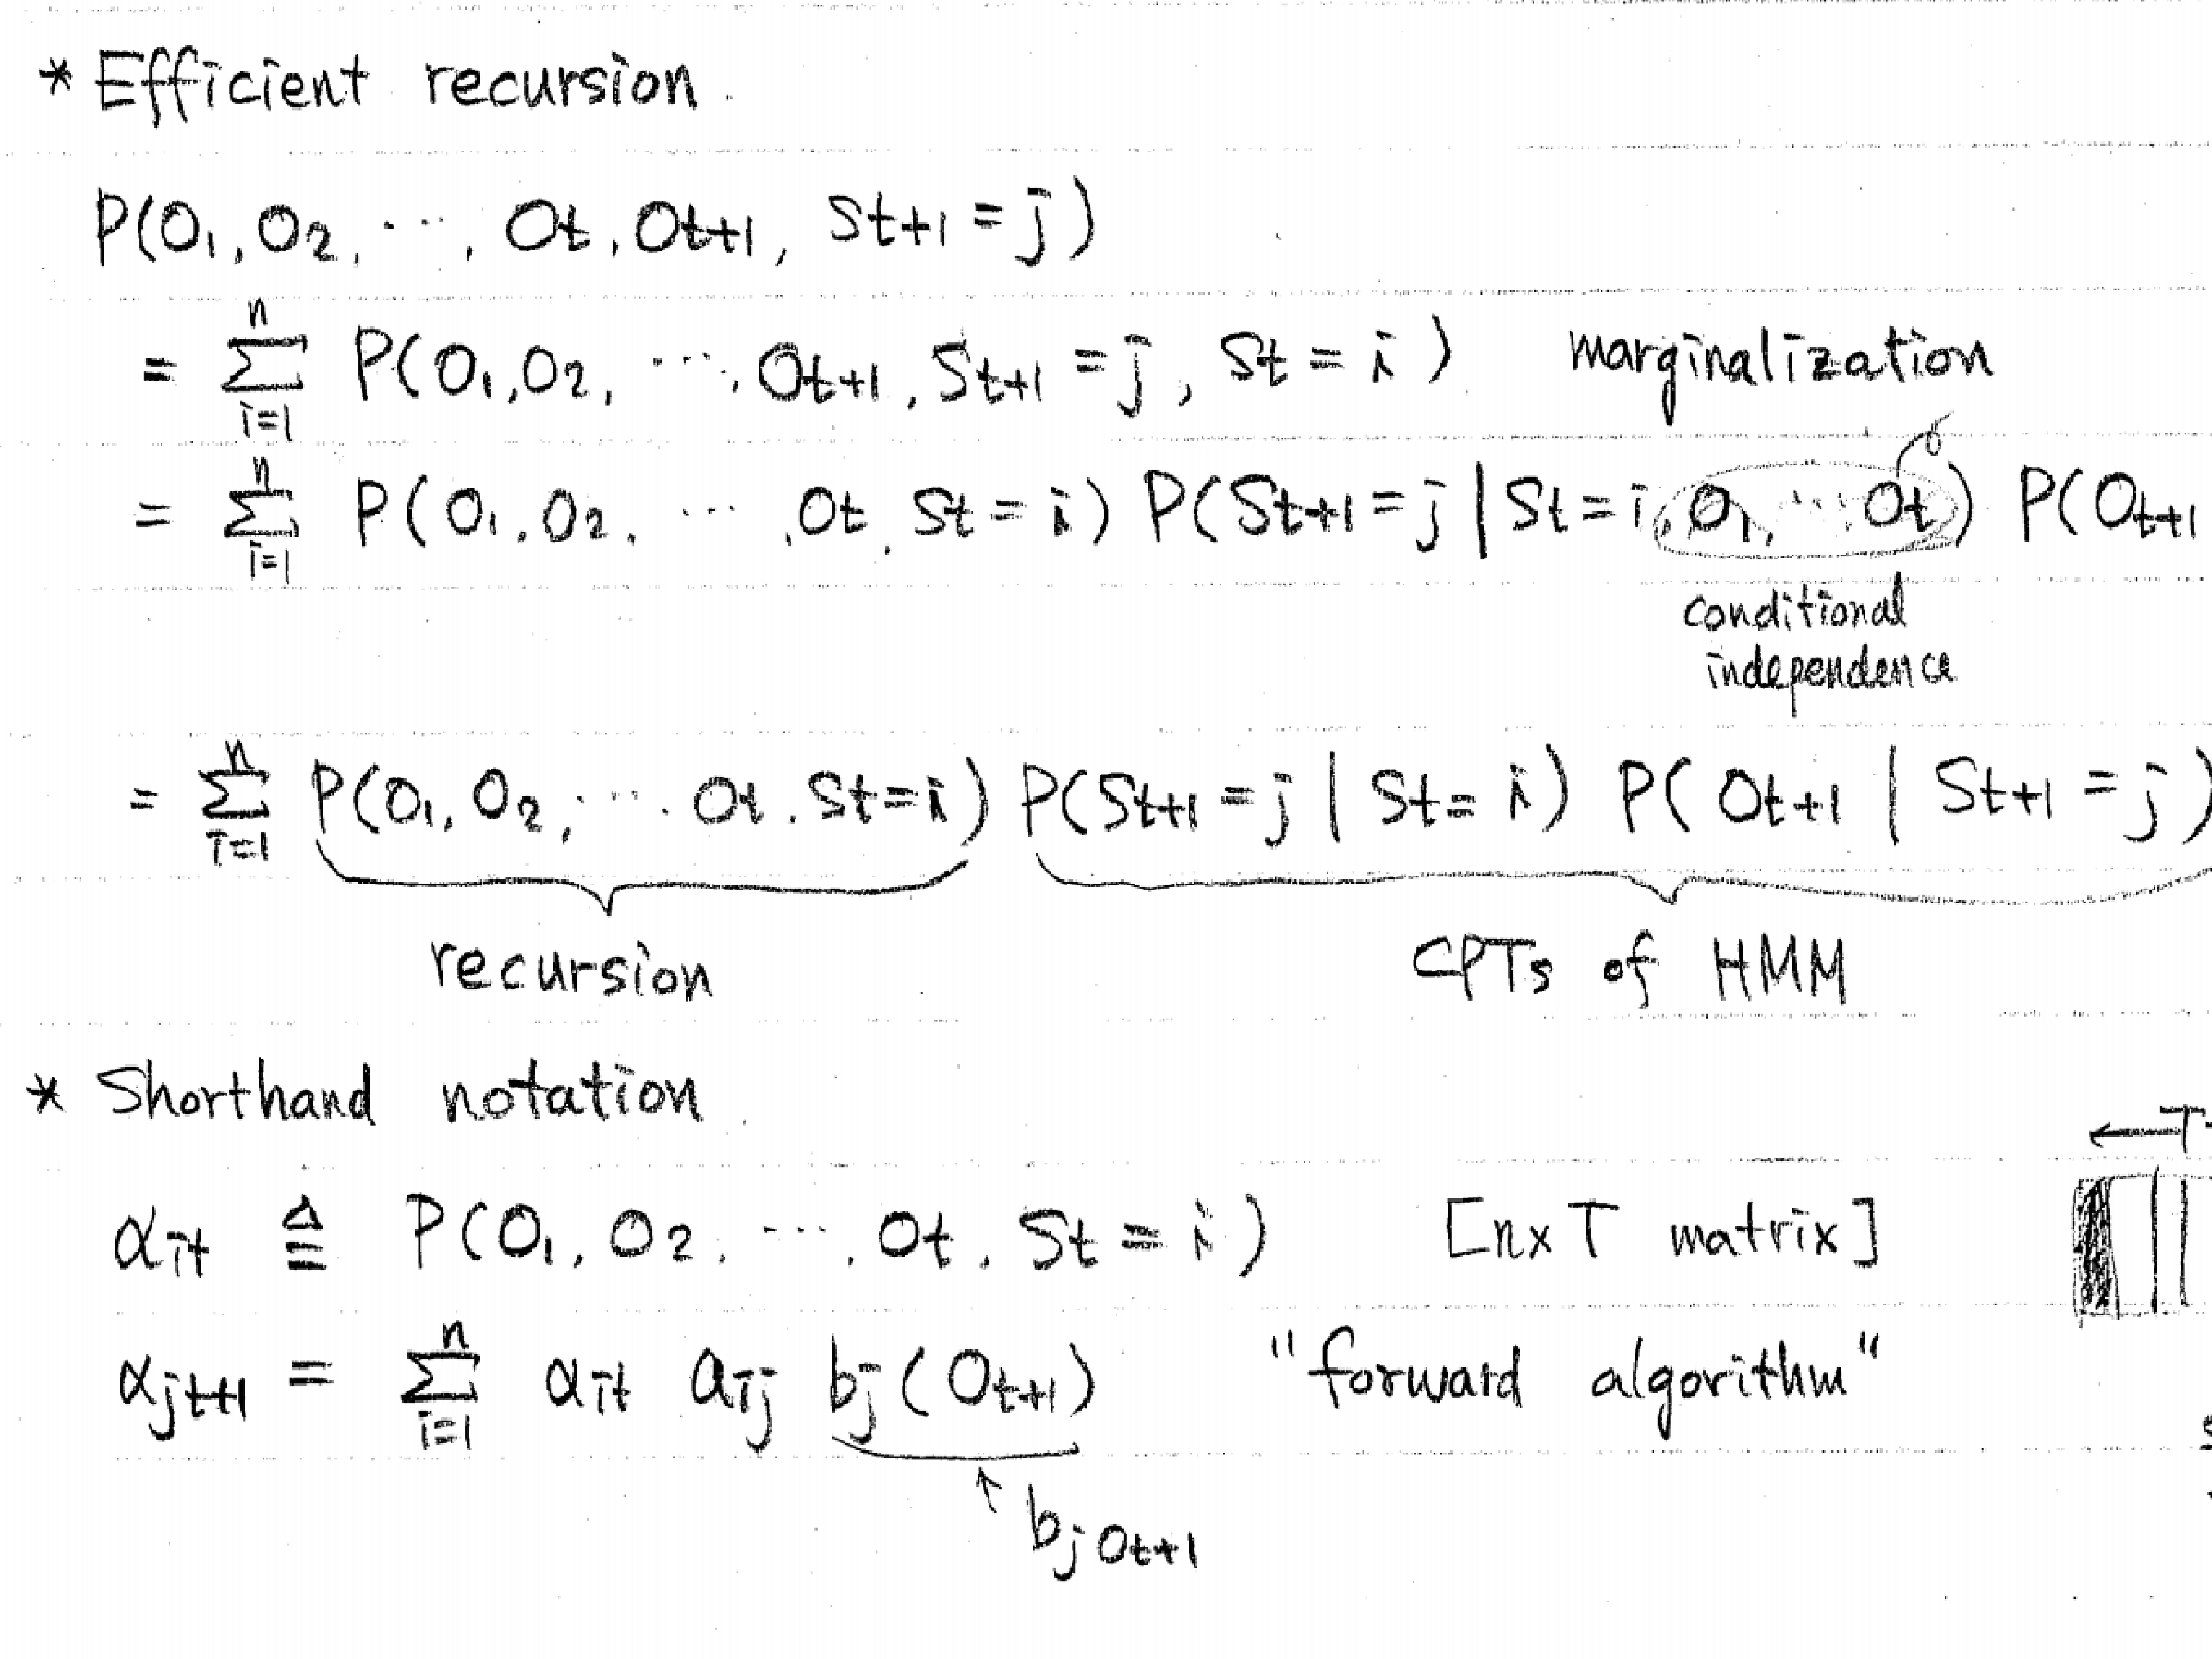 * Efficient recursion.
P(O₁, O₂, ⋯, Oₜ, Oₜ₊₁, Sₜ₊₁ = j)
= ∑ⁿᵢ₌₁ P(O₁, O₂, ⋯, Oₜ₊₁, Sₜ₊₁ = j, Sₜ = i) marginalization
= ∑ⁿᵢ₌₁ P(O₁, O₂, ⋯, Oₜ, Sₜ = i) P(Sₜ₊₁ = j | Sₜ = i, O₁, ⋯ Oₜ) P(Oₜ₊₁
conditional
independence
= ∑ⁿᵢ₌₁ P(O₁, O₂, ⋯ Oₜ, Sₜ = i) P(Sₜ₊₁ = j | Sₜ = i) P(Oₜ₊₁ | Sₜ₊₁ = j)
recursion CPTs of HMM
* Shorthand notation.
T
αᵢₜ ≜ P(O₁, O₂, ⋯, Oₜ, Sₜ = i) [n×T matrix]
αⱼₜ₊₁ = ∑ⁿᵢ₌₁ αᵢₜ aᵢⱼ bⱼ(Oₜ₊₁) "forward algorithm"
↑ bⱼOₜ₊₁